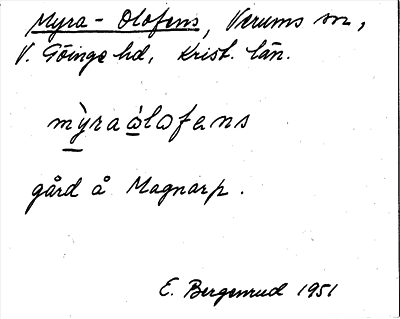 Myra-Olofens, Verums sn,
V. Göinge hd, Krist. län.
mỳraólofens
gård å Magnarp.
E. Bergenrud 1951